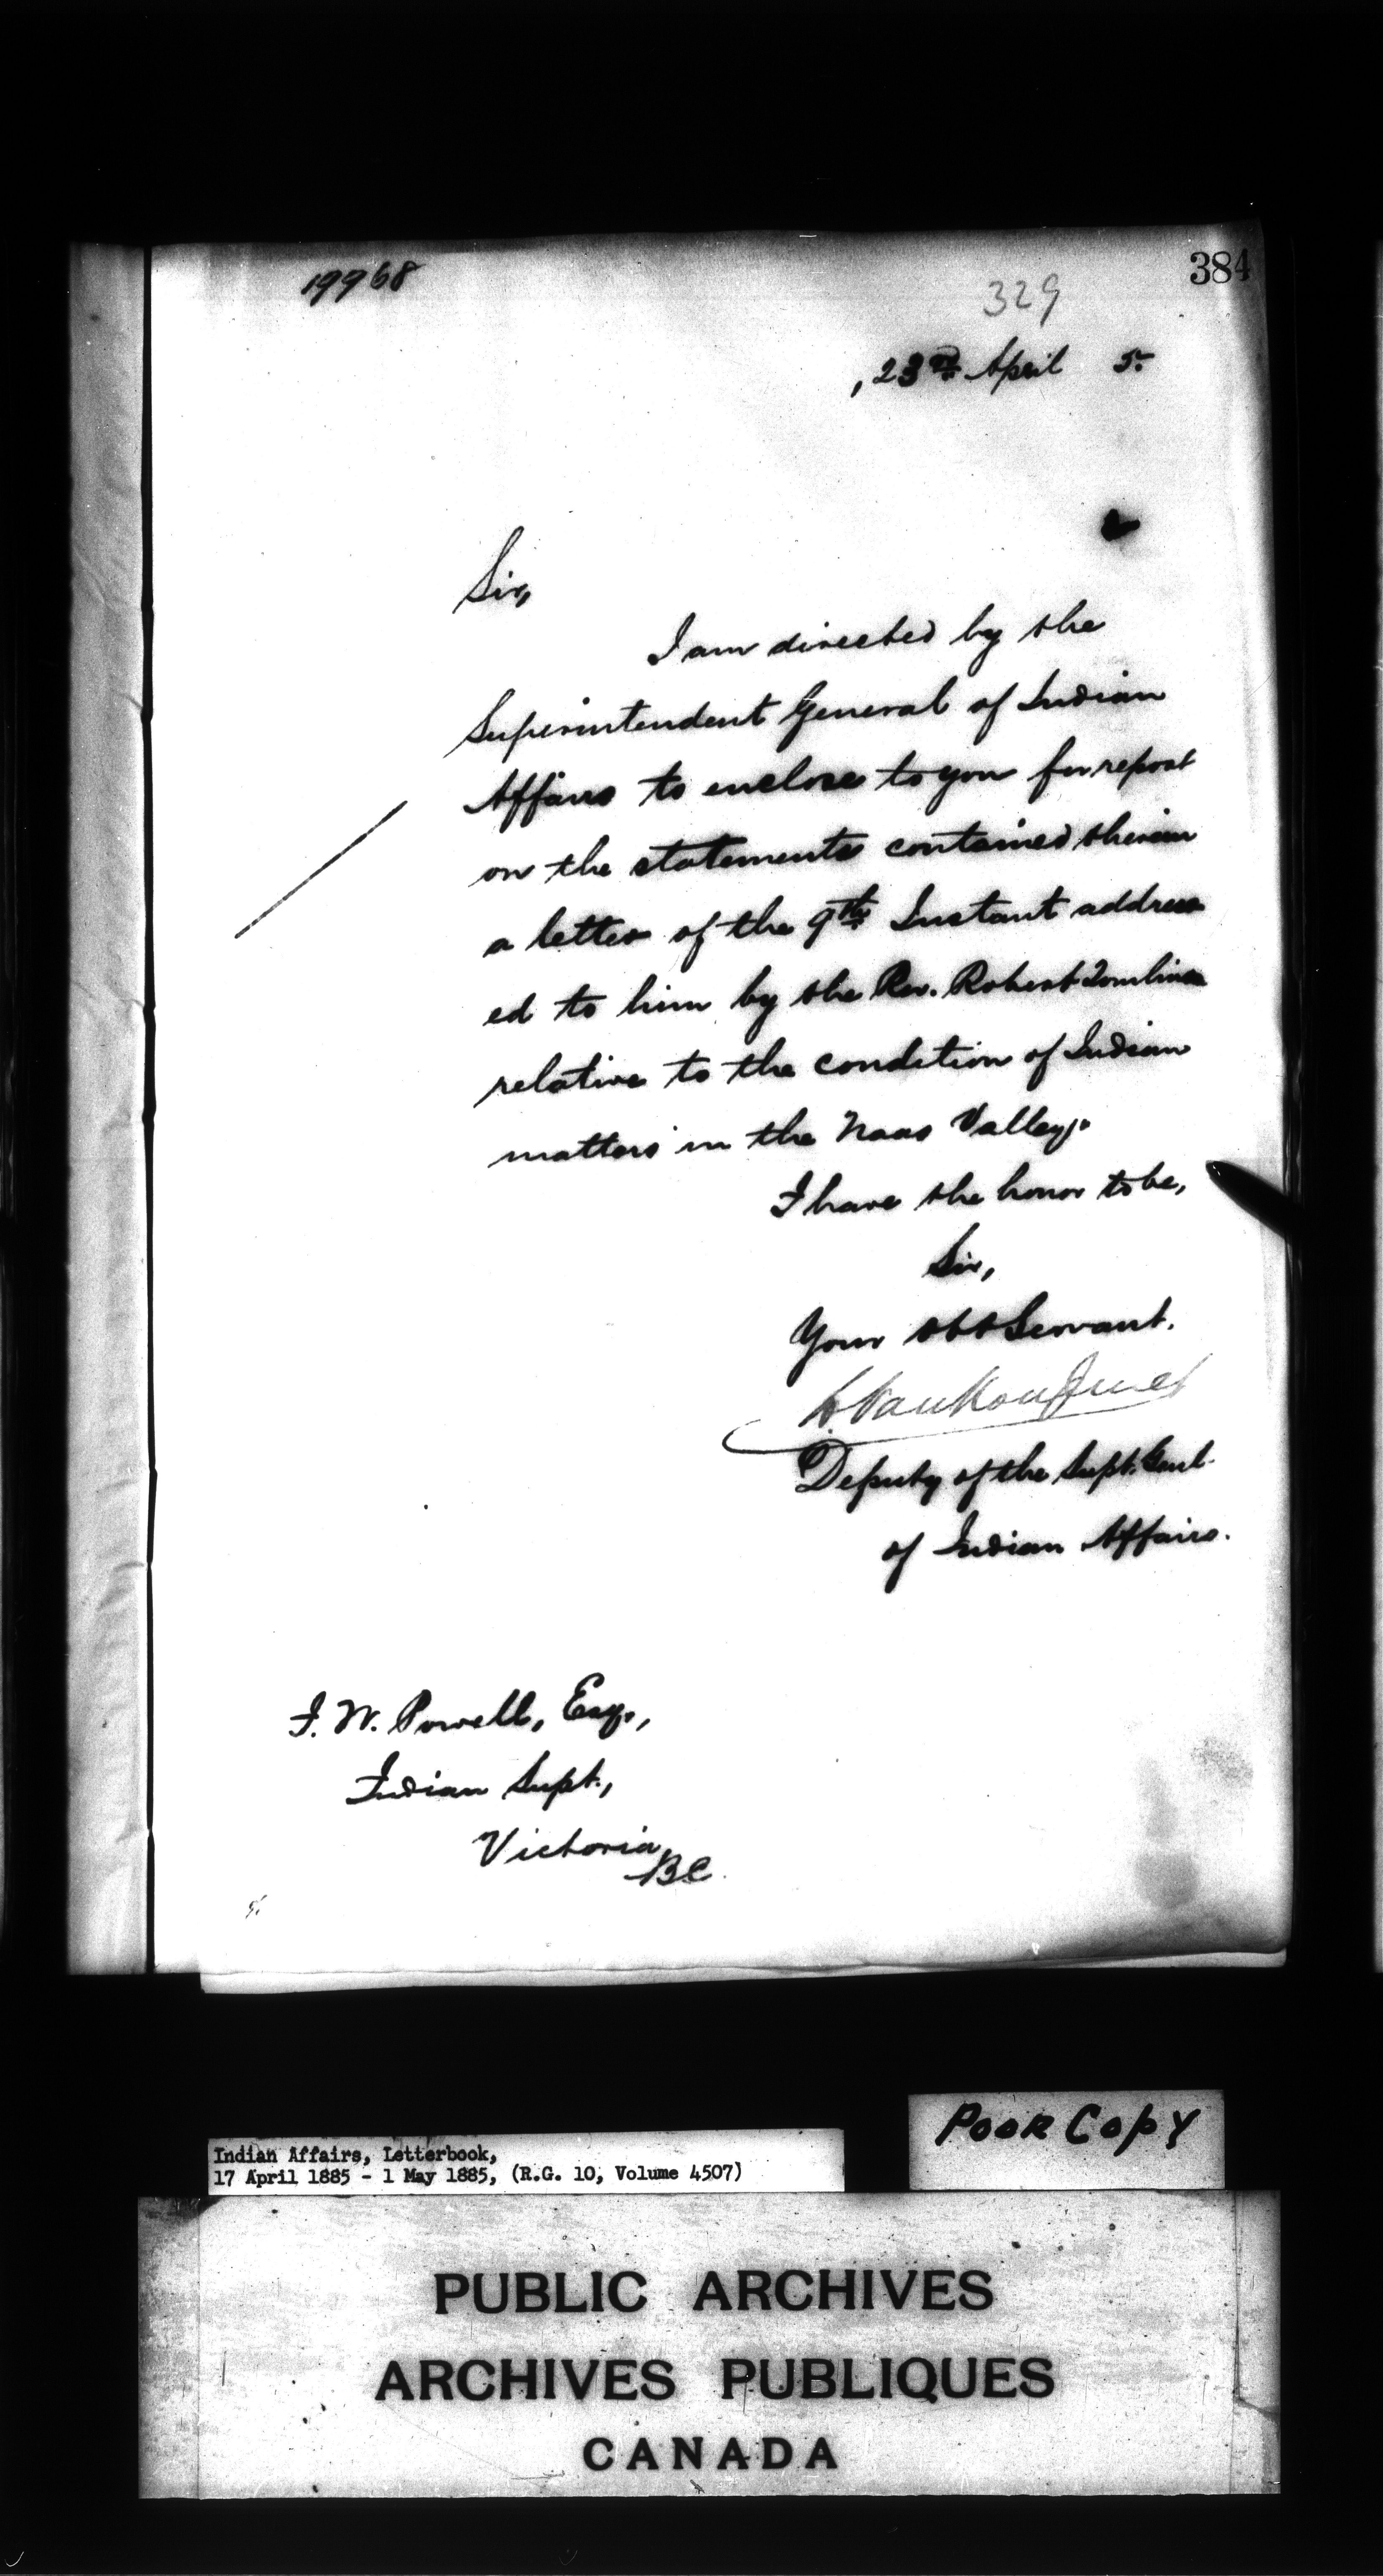 19968
384
329
, 23rd April 5.
Sir,
I am directed by the
Superintendent General of Indian
Affairs to enclose to you for report
on the statements contained therein
a letter of the 9th Instant address
ed to him by the Rev. Robert Tomlinson
relative to the condition of Indian
matters in the Naas Valley.
I have the honor to be,
Sir,
Your obt Servant.
L. VanKoughnet
Deputy of the Supt. Genl.
of Indian Affairs.
I. W. Powell, Esq.,
Indian Supt.,
Victoria,
BC.
Poor Copy
Indian Affairs, Letterbook,
17 April 1885 - 1 May 1885, (R.G. 10, Volume 4507)
PUBLIC ARCHIVES
ARCHIVES PUBLIQUES
CANADA